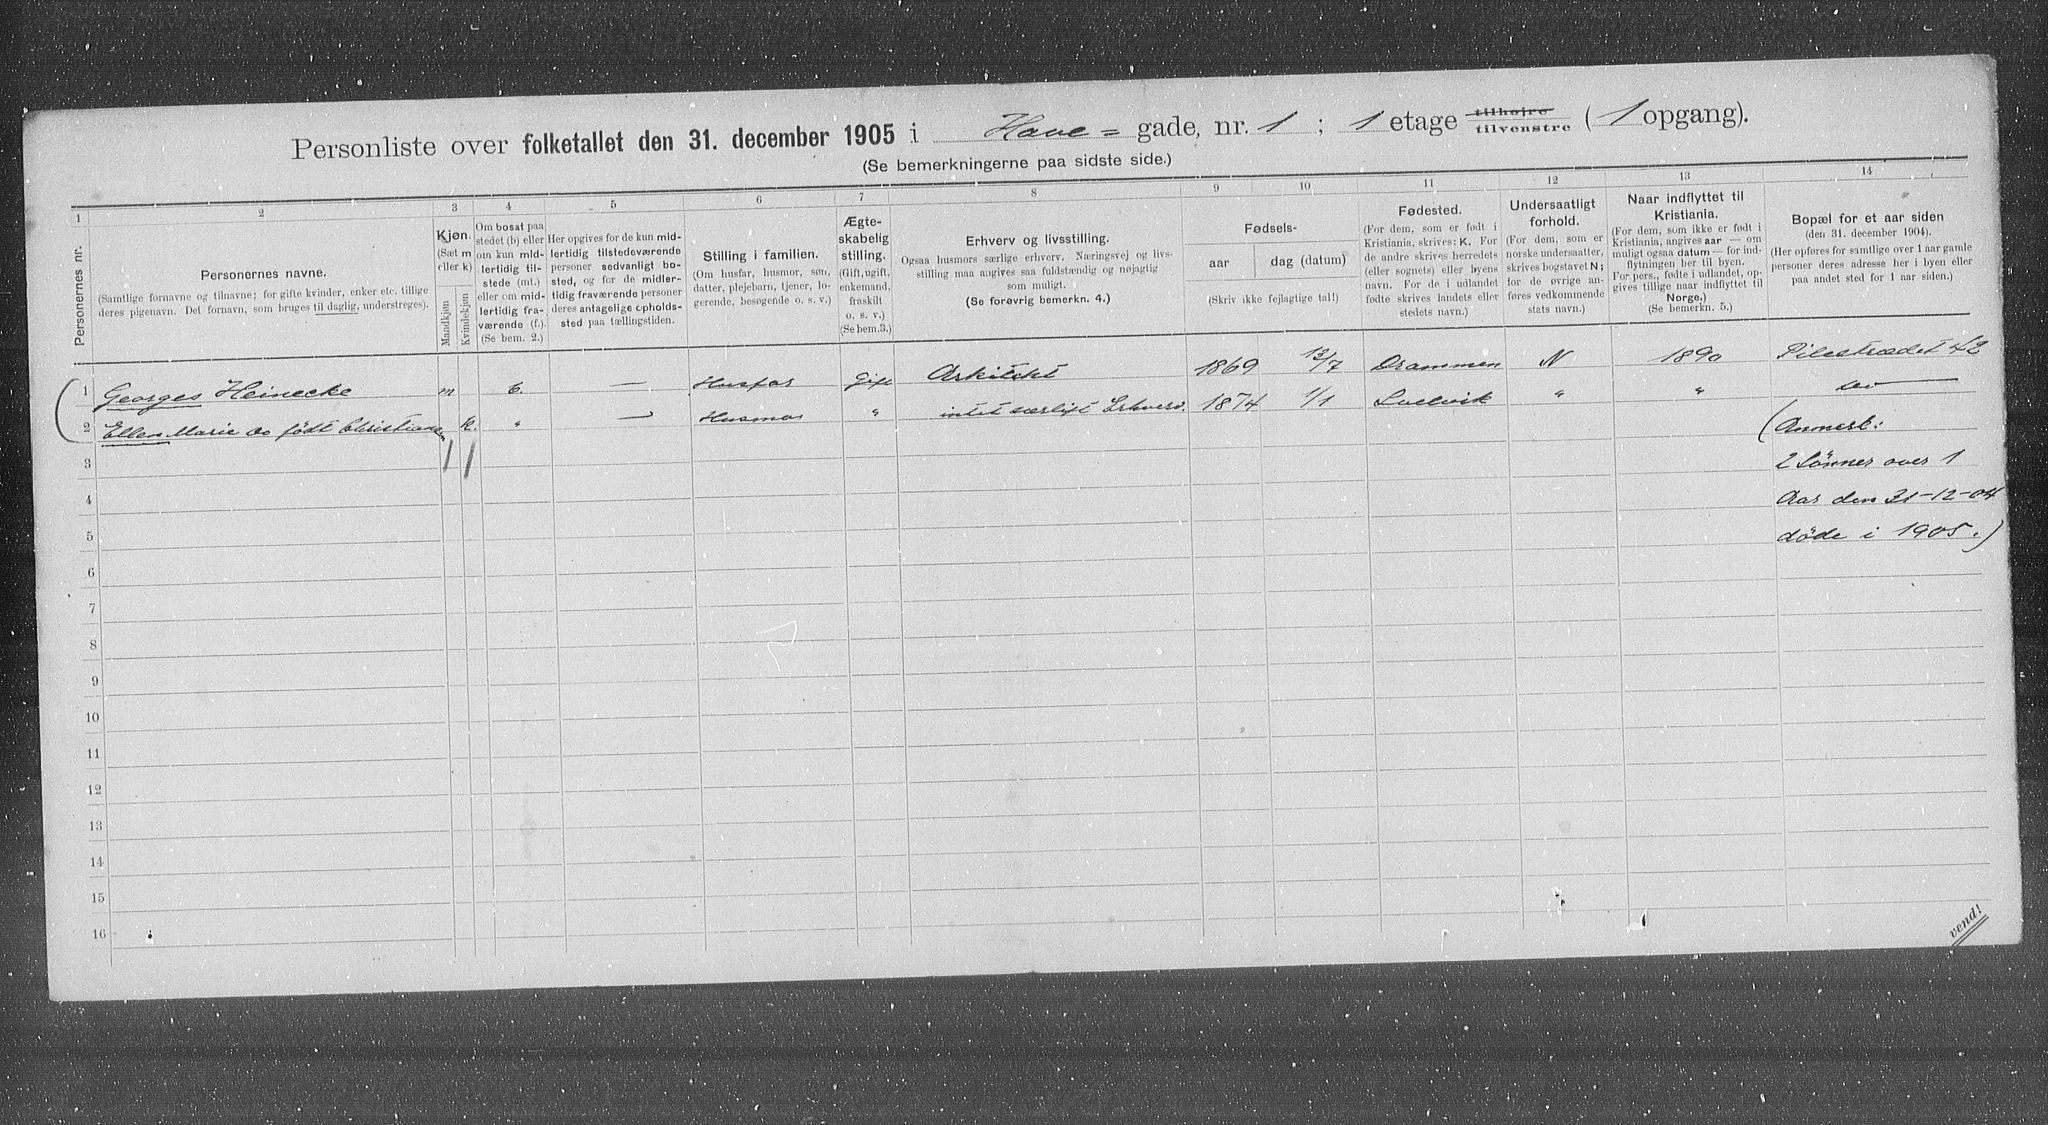 Personliste over folketallet den 31. december 1905 i Have= gade, nr. 1 ; 1 etage tilhøjre tilvenstre ( 1 opgang).
(Se bemerkningerne paa sidste side.)
1 2 3 4 5 6 7 8 9 10 11 12 13 14
Personernes nr.
Personernes navne.
(Samtlige fornavne og tilnavne; for gifte kvinder, enker etc. tillige
deres pigenavn. Det fornavn, som bruges til daglig, understreges).
Kjøn.
(Sæt m
eller k)
Mandkjøn
Kvindekjøn
Om bosat paa
stedet (b) eller
om kun mid-
lertidig til-
stede (mt.)
eller om mid-
lertidig fra-
værende (f.).
(Se bem. 2.)
Her opgives for de kun mid-
lertidig tilstedeværende
personer sedvanligt bo-
sted, og for de midler-
tidig fraværende personer
deres antagelige opholds-
sted paa tællingstiden.
Stilling i familien.
(Om husfar, husmor, søn,
datter, plejebarn, tjener, lo-
gerende, besøgende o. s. v.)
Ægte-
skabelig
stilling.
(Gift, ugift,
enkemand,
fraskilt
o. s. v.)
(Se bem. 3.)
Erhverv og livsstilling.
Ogsaa husmors særlige erhverv. Næringsvej og livs-
stilling maa angives saa fuldstændig og nøjagtig
som muligt.
(Se forøvrig bemerkn. 4.)
Fødsels-
aar
dag (datum)
(Skriv ikke fejlagtige tal!)
Fødested.
(For dem, som er født i
Kristiania, skrives: K. For
de andre skrives herredets
(eller sognets) eller byens
navn. For de i udlandet
fødte skrives landets eller
stedets navn.)
Undersaatligt
forhold.
(For dem, som er
norske undersaatter,
skrives bogstavet N;
for de øvrige an-
føres vedkommende
stats navn.)
Naar indflyttet til
Kristiania.
(For dem, som ikke er født i
Kristiania, angives aar — om
muligt ogsaa datum — for ind-
flytningen her til byen.
For pers., fødte i udlandet, op-
gives tillige naar indflyttet til
Norge.)
(Se bemerkn. 5.)
Bopæl for et aar siden
(den 31. december 1904).
(Her opføres for samtlige over 1 aar gamle
personer deres adresse her i byen eller
paa andet sted for 1 aar siden.)
1 Georges Heinecke m b. — Husfar Gift Arkitekt 1869 13/7 Drammen N 1890 Pilestrædet 42
2 Ellen Marie do født Christiansen k. " — Husmor " intet særligt Erhverv. 1874 1/1 Svelvik " " do —
(Anmerk:
3 2 Sönner over 1
4 Aar den 31-12-04
5 döde i 1905.)
6
7
8
9
10
11
12
13
14
15
16
vend!